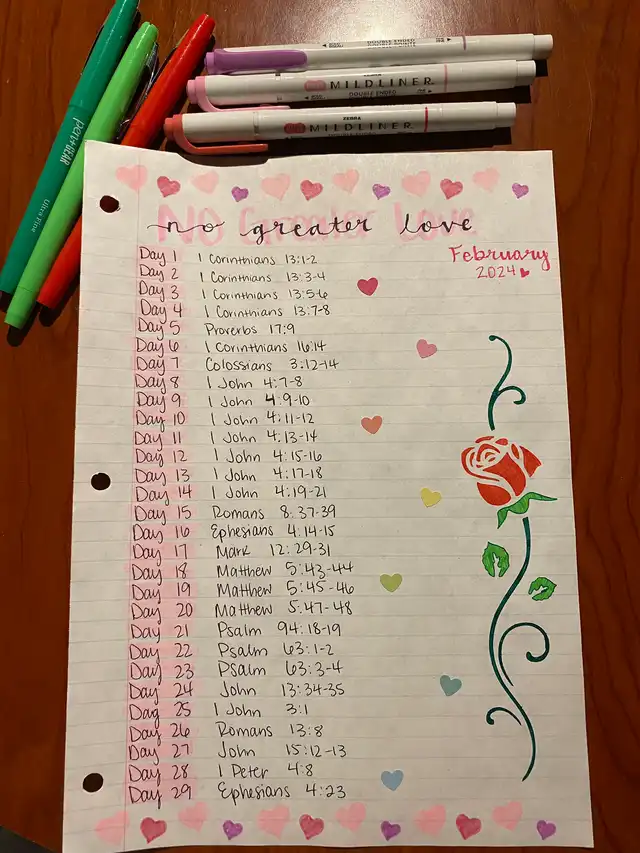 DOUBLE ENDED
ZEBRA
MILDLINER
DOUBLE ENDED
ZEBRA
MILDLINER
pen+GEAR
Ultra Fine
NO Greater Love
no greater love
February
2024
Day 1 1 Corinthians 13:1-2
Day 2 1 Corinthians 13:3-4
Day 3 1 Corinthians 13:5-6
Day 4 1 Corinthians 13:7-8
Day 5 Proverbs 17:9
Day 6 1 Corinthians 16:14
Day 7 Colossians 3:12-14
Day 8 1 John 4:7-8
Day 9 1 John 4:9-10
Day 10 1 John 4:11-12
Day 11 1 John 4:13-14
Day 12 1 John 4:15-16
Day 13 1 John 4:17-18
Day 14 1 John 4:19-21
Day 15 Romans 8:37-39
Day 16 Ephesians 4:14-15
Day 17 Mark 12:29-31
Day 18 Matthew 5:43-44
Day 19 Matthew 5:45-46
Day 20 Matthew 5:47-48
Day 21 Psalm 94:18-19
Day 22 Psalm 63:1-2
Day 23 Psalm 63:3-4
Day 24 John 13:34-35
Day 25 1 John 3:1
Day 26 Romans 13:8
Day 27 John 15:12-13
Day 28 1 Peter 4:8
Day 29 Ephesians 4:23